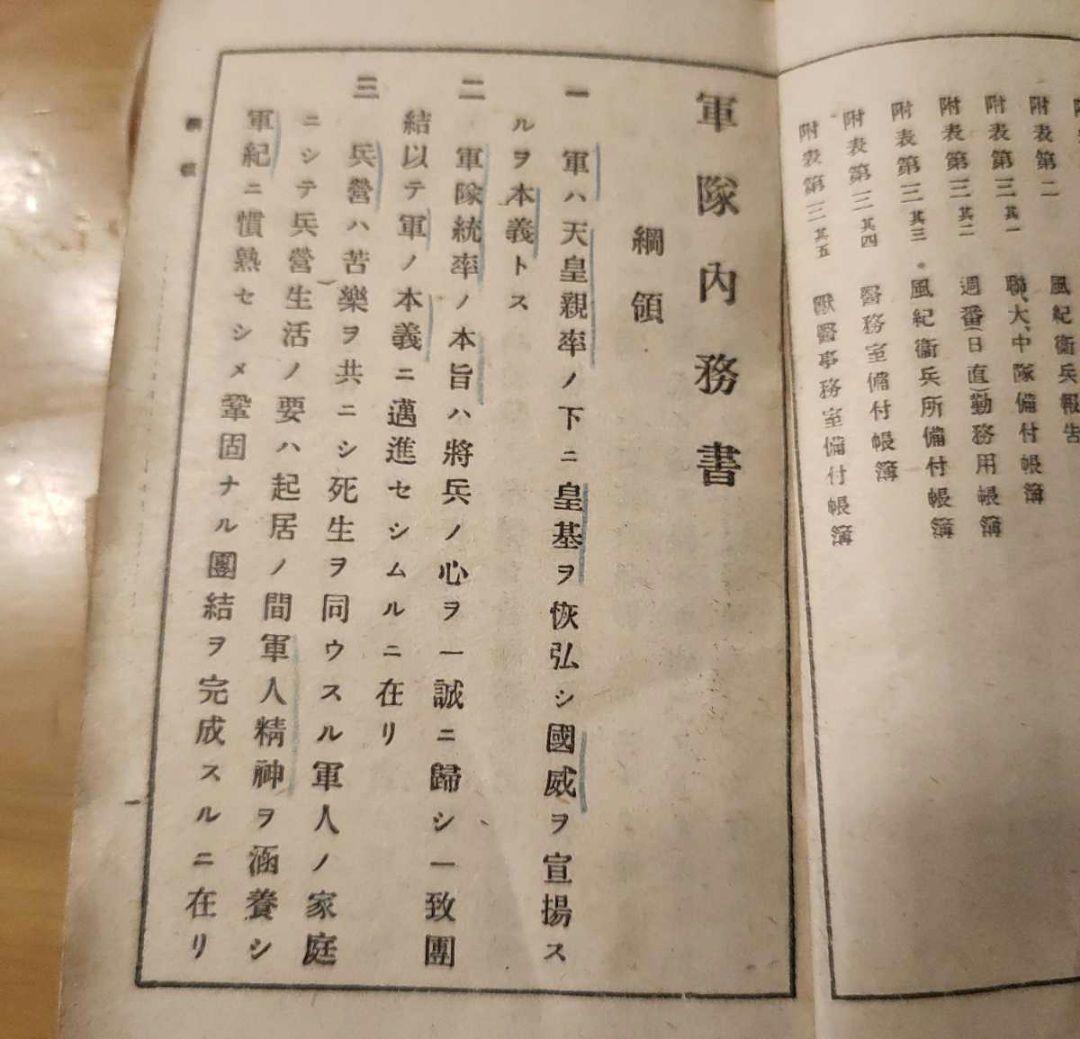 附表第二 風紀衞兵報告
附表第三其一 聯、大、中隊備付帳簿
附表第三其二 週番(日直)勤務用帳簿
附表第三其三 風紀衞兵所備付帳簿
附表第三其四 醫務室備付帳簿
附表第三其五 獸醫事務室備付帳簿
軍隊內務書
綱領
一 軍ハ天皇親率ノ下ニ皇基ヲ恢弘シ國威ヲ宣揚ス
ルヲ本義トス
二 軍隊統率ノ本旨ハ將兵ノ心ヲ一誠ニ歸シ一致團
結以テ軍ノ本義ニ邁進セシムルニ在リ
三 兵營ハ苦樂ヲ共ニシ死生ヲ同ウスル軍人ノ家庭
ニシテ兵營生活ノ要ハ起居ノ間軍人精神ヲ涵養シ
軍紀ニ慣熟セシメ鞏固ナル團結ヲ完成スルニ在リ